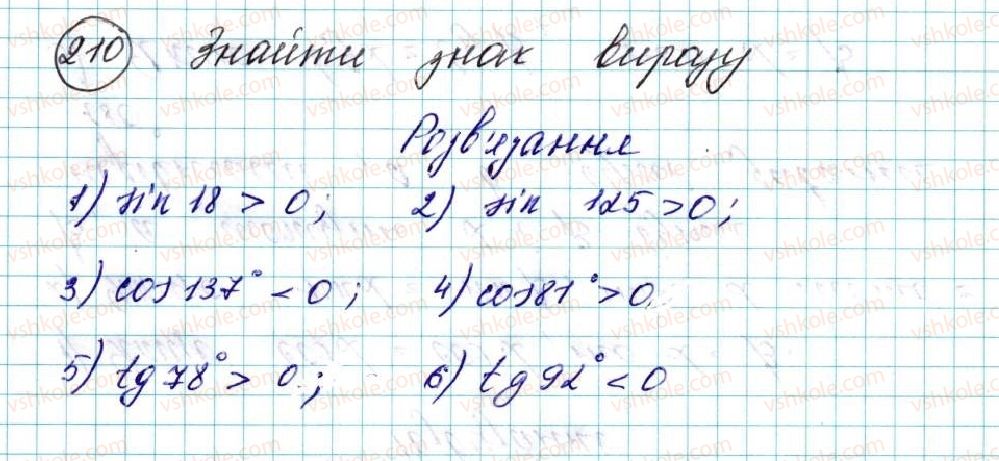 210 Знайти знак виразу
Розв'язання
1) sin 18 > 0; 2) sin 125 > 0;
3) cos 137° < 0; 4) cos 81° > 0
5) tg 78° > 0; 6) tg 92° < 0